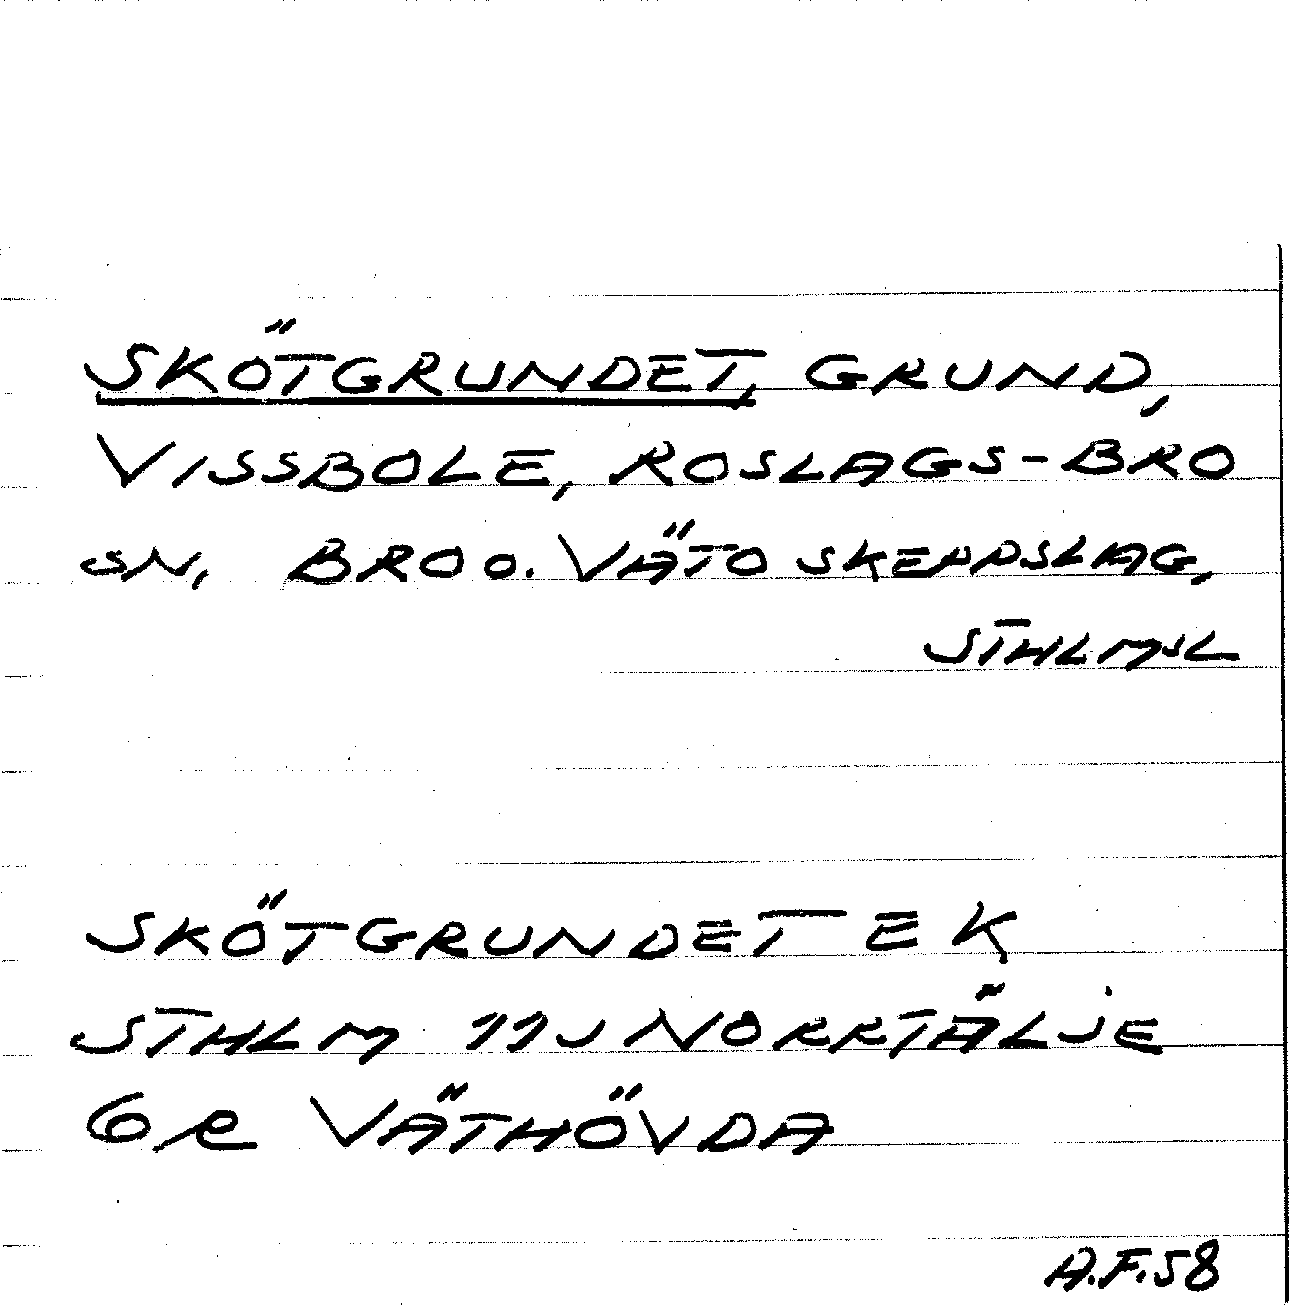 SKÖTGRUNDET, GRUND,
VISSBOLE, ROSLAGS-BRO
SN, BRO O. VÄTO SKEPPSLAG,
STHLMSL
SKÖTGRUNDET EK
STHLM 11J NORRTÄLJE
6R VÄTHÖVDA
A.F.58